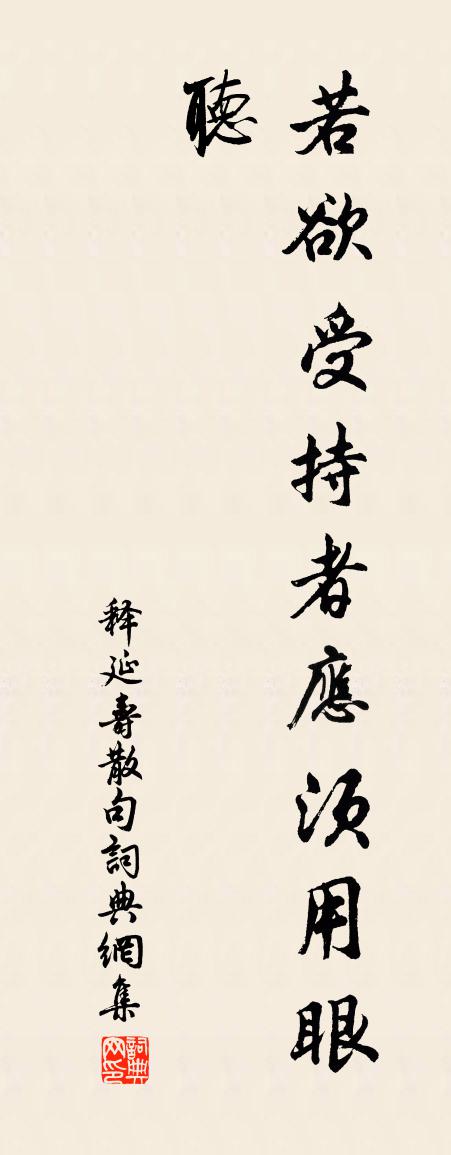 若欲受持者應須用眼
聽
释延壽散句詞典網集
詞典网印